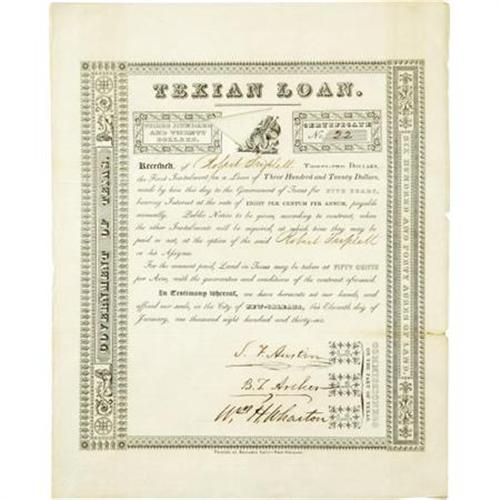 TEXIAN LOAN.
THREE HUNDRED
AND TWENTY
DOLLARS.
CERTIFICATE
No. 22
GOVERNMENT OF TEXAS.
SIX HUNDRED AND FORTY ACRES OF LAND.
Received, of Robert Triplett Thirty-two Dollars,
the First Instalment on a Loan of Three Hundred and Twenty Dollars,
made by him this day to the Government of Texas for FIVE YEARS,
bearing Interest at the rate of EIGHT PER CENTUM PER ANNUM, payable
annually. Public Notice to be given, according to contract, when
the other Instalments will be required, at which time they may be
paid in or not, at the option of the said Robert Triplett
or his Assigns.
For the amount paid, Land in Texas may be taken at FIFTY CENTS
per Acre, with the guarantee and conditions of the contract aforesaid.
In Testimony whereof, we have hereunto set our hands, and
affixed our seals, in the City of NEW-ORLEANS, this Eleventh day of
January, one thousand eight hundred and thirty-six.
S. F. Austin
B. T. Archer
Wm H. Wharton
COMMISSIONERS
ON THE PART OF TEXAS